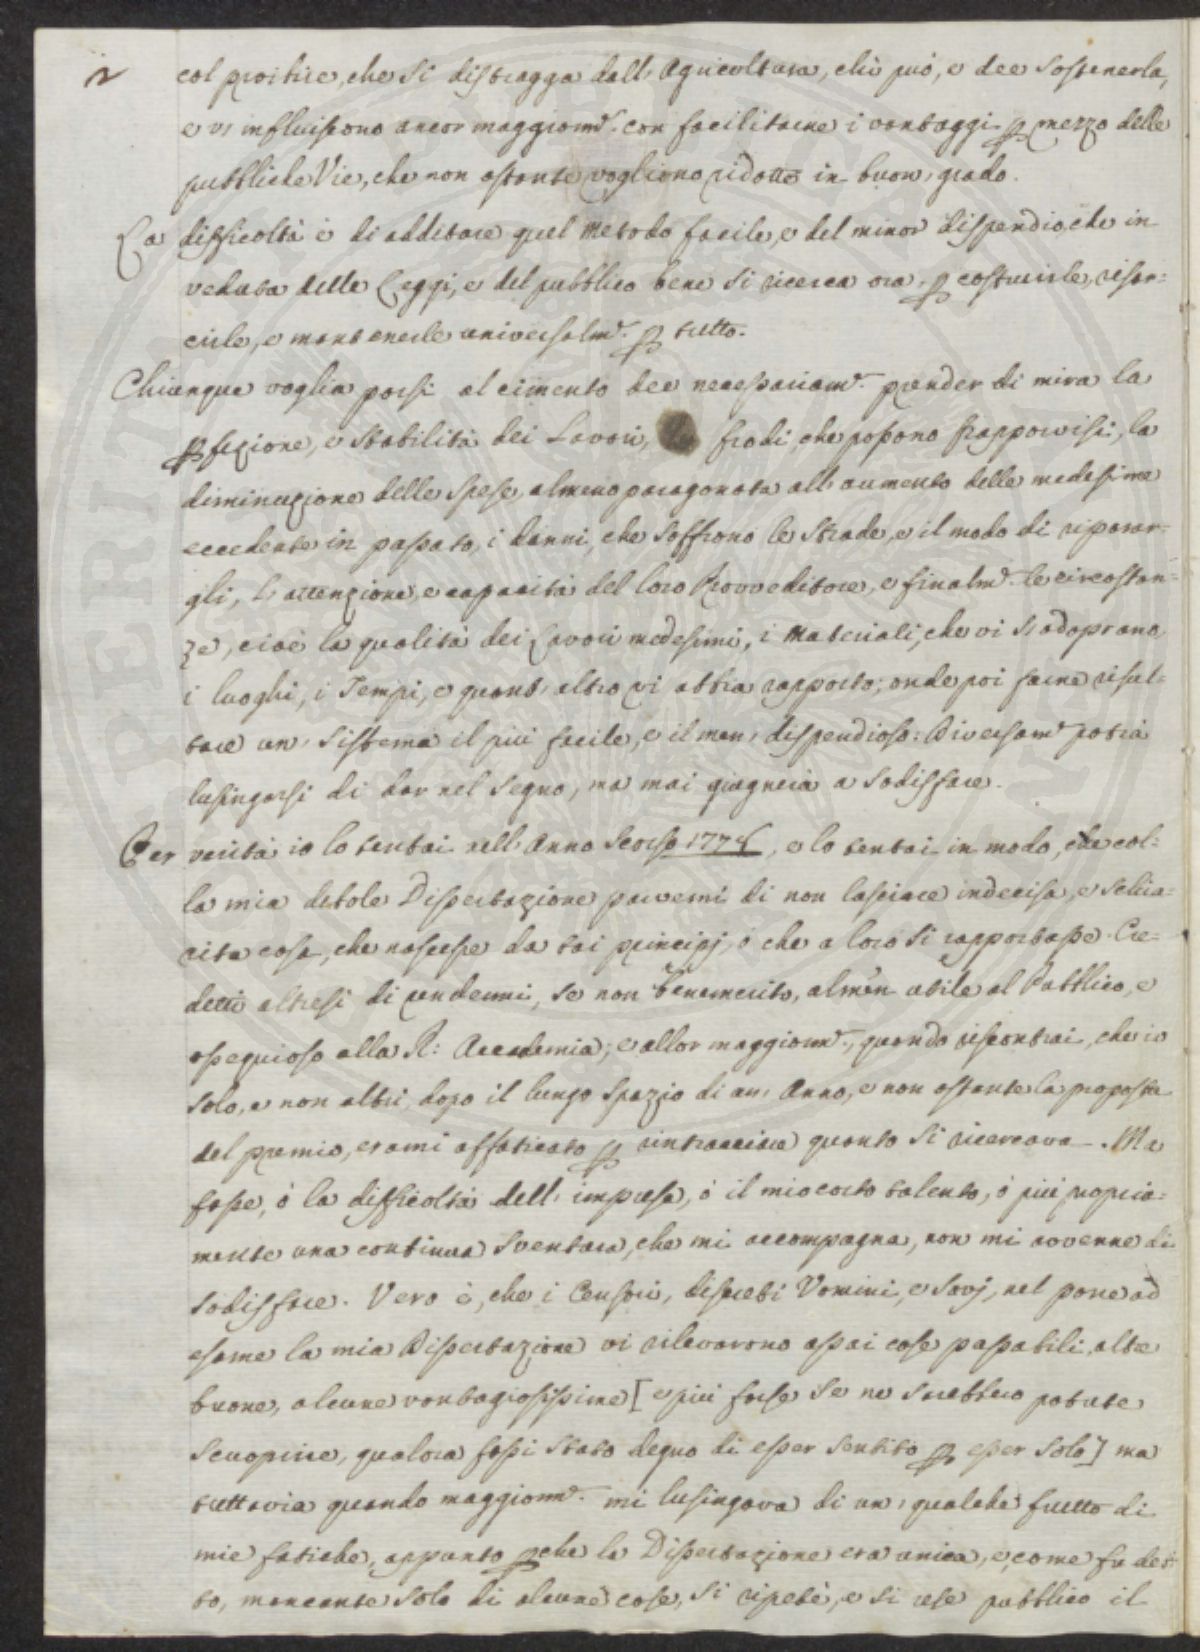 2
col proibire, che si distragga dall' Agricoltura, chi può, e dee sostenerla,
e vi influiscono ancor maggiorm.e con facilitarne i vantaggi p mezzo delle
pubbliche Vie, che non ostante vogliono ridotte in buon' grado.
La difficoltà è di additare quel Metodo facile, e del minor dispendio, che in
veduta delle Leggi, e del pubblico bene si ricerca ora p costruirle, risar=
cirle, e mantenerle universalm.e p tutto.
Chiunque voglia porsi al cimento dee necessariam.e prender di mira la
pfezione, e stabilità dei Lavori, frodi, che possono frapporvisi, la
diminuzione delle spese, almeno paragonata all' aumento delle medesime
eccedente in passato, i danni, che soffrono le Strade, e il modo di riparar=
gli, l' attenzione, e capacità del loro Provveditore, e finalm.e le circostan=
ze, cioè la qualità dei Lavori medesimi, i Materiali, che vi s' adoprano,
i luoghi, i Tempi, e quant' altro vi abbia rapporto; onde poi farne risul=
tare un' Sistema il più facile, e il men' dispendioso: Diversam.e potrà
lusingarsi di dar nel segno, ma mai giugnerà a sodisfare.
Per verità io lo tentai nell' Anno scorso 1774, e lo tentai in modo, che col=
la mia debole Dissertazione parvemi di non lasciare indecisa, e schia=
rita cosa, che nascesse da tai principj, ò che a loro si rapportasse. Cre=
detti altresì di rendermi, se non benemerito, almen utile al Pubblico, e
ossequioso alla R: Accademia; e allor maggiorm.e, quando riscontrai, che io
solo, e non altri, dopo il lungo spazio di un' Anno, e non ostante la proposta
del premio, erami affaticato p rintracciare quanto si ricercava. Ma
fosse, ò la difficoltà dell' impresa, ò il mio corto talento, ò più propria=
mente una continua sventura, che mi accompagna, non mi avvenne di
sodisfare. Vero è, che i Censori, discreti Uomini, e Savj, nel porre ad
esame la mia Dissertazione vi rilevarono assai cose passabili, altre
buone, alcune vantagiosissime [ e più forse se ne sarebbero potute
scuoprire, qualora fossi stato degno di esser sentito p esser solo ] ma
tuttavia quando maggiorm.e mi lusingava di un' qualche frutto di
mie fatiche, appunto pche la Dissertazione era unica, e, come fu det=
to, mancante solo di alcune cose, si ripetè, e si rese pubblico il